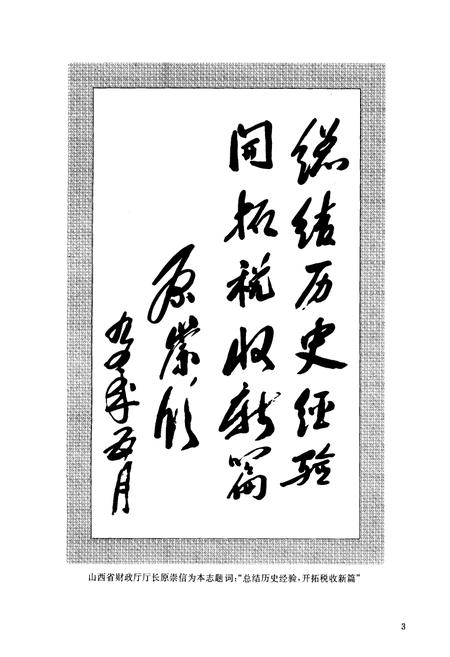 总结历史经验
开拓税收新篇
原崇信
九五年五月
山西省财政厅厅长原崇信为本志题词:“总结历史经验,开拓税收新篇”
3